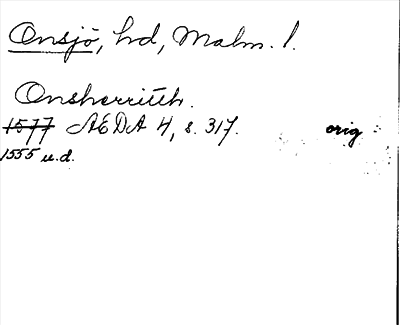 Onsjö, hd, Malm. l.
Onsherritth.
1577 AEDA 4, s. 317. orig
1555 u.d.